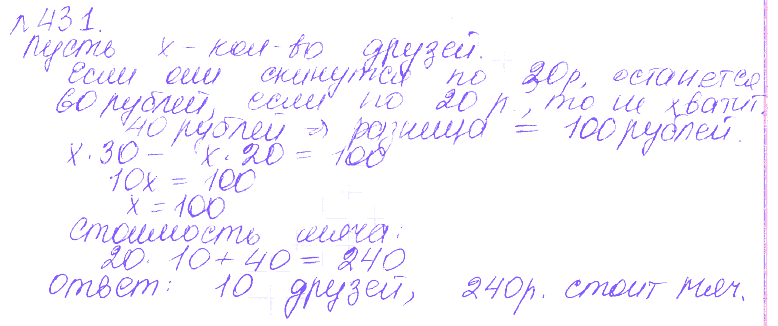 №431.
Пусть x - кол-во друзей.
Если они скинутся по 20р. останется
60 рублей, если по 20 р., то не хватит
40 рублей ⇒ разница = 100 рублей.
x·30 - x·20 = 100
10x = 100
x = 100
Стоимость мяча:
20·10+40 = 240
Ответ: 10 друзей, 240р. стоит мяч.